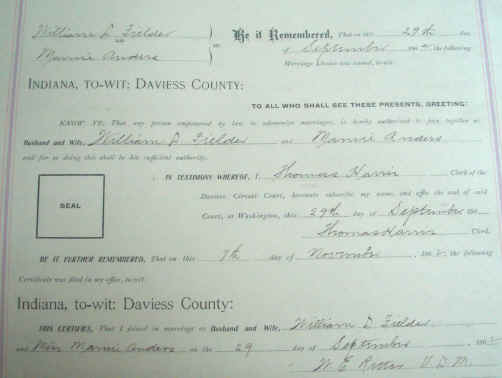 William D Fielder
Be it Remembered, That on this 29th day
Mamie Anders
of September the following
Marriage License was issued, to-wit:
INDIANA, TO-WIT; DAVIESS COUNTY:
TO ALL WHO SHALL SEE THESE PRESENTS, GREETING:
KNOW YE: That any person empowered by law to solemnize marriages, is hereby authorized to join together as
Husband and Wife, William D Fielder and Mamie Anders
and for so doing this shall be his sufficient authority.
IN TESTIMONY WHEREOF, I Thomas Harris Clerk of the
Daviess Circuit Court, hereunto subscribe my name, and affix the seal of said
SEAL
Court, at Washington, this 29th day of September
Thomas Harris Clerk.
BE IT FURTHER REMEMBERED, That on this 7th day of November the following
Certificate was filed in my office, to-wit:
Indiana, to-wit: Daviess County:
THIS CERTIFIES, That I joined in marriage as Husband and Wife, William D Fielder
and Miss Mamie Anders on the 29 day of September
W. E.